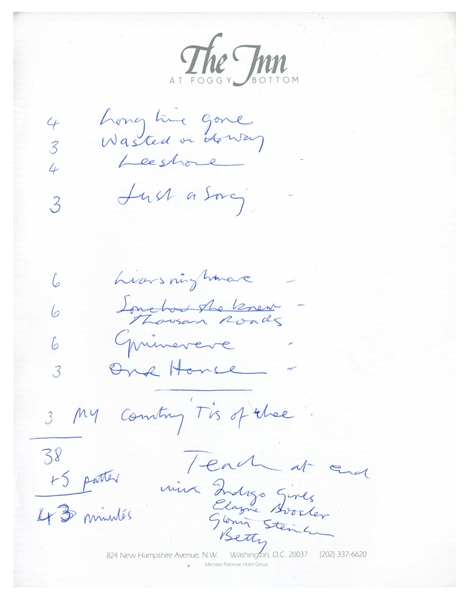 The Inn
AT FOGGY BOTTOM
4 Long time gone
3 Wasted on the way
4 Leeshore
3 Just a song
6 Liars nightmare -
6 Somehow she knew -
Thousand Roads
6 Guinevere -
3 Our House -
3 My Country 'Tis of thee.
38
+5 patter
43 minutes
Teach at end
with Indigo Girls
Elayne Boosler
Gloria Steinem
Betty
824 New Hampshire Avenue, N.W. Washington, D.C. 20037 (202) 337-6620
Member Potomac Hotel Group